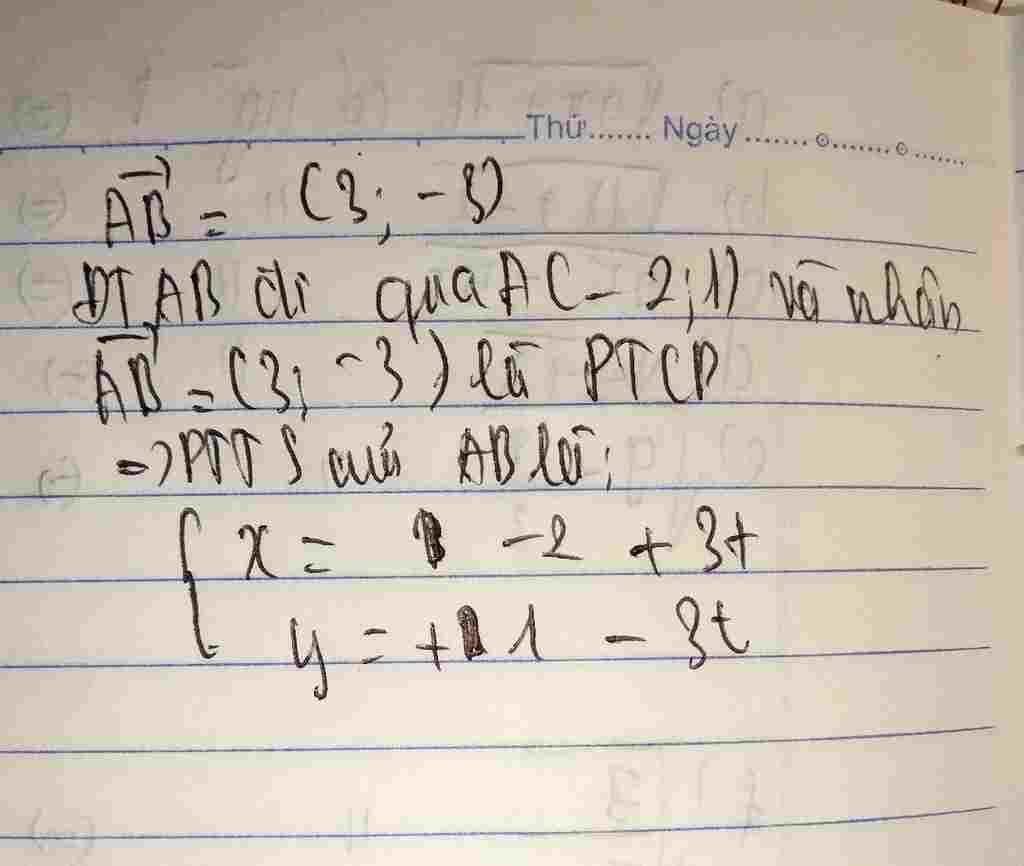 Thứ....... Ngày.......o.......o.......
AB = (3; -3)
ĐT AB đi qua A(-2;1) và nhận
AB = (3; -3) là PTCP
=> PTTS của AB là:
x = -2 + 3t
y = +1 - 3t